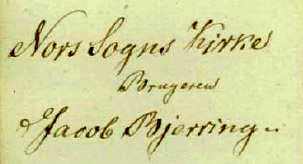 Nors Sogns Kirke
Brugeren
Jacob Bjerring